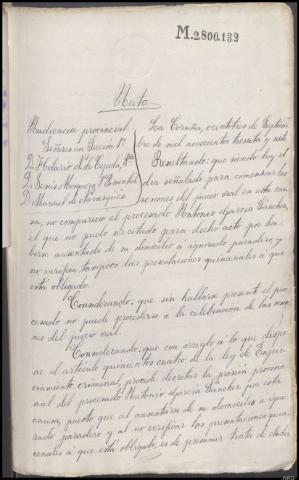 M.2800.132
Auto
Audiencia provincial
Señores en Sección 1ª
D. Hilario N. de Cepeda, Pte
D. Genis Marquez y Pimentel
D. Manuel de
La Coruña, veintitres de Septiem
bre de mil novecientos treinta y siete.
Resultando: que siendo hoy el
dia señalado para comenzar las
sesiones del juicio oral en esta cau
sa, no compareció el procesado Antonio García Sánchez,
el que no pudo ser citado para dicho acto por ha-
berse ausentado de su domicilio a ignorado paradero y
no verifica tampoco las presentaciones quincenales a que
está obligado.
Considerando: que sin hallarse presente el pro-
cesado no puede procederse a la celebración de las sesio
nes del juicio oral.
Considerando: que con arreglo á lo que dispo-
ne el artículo quinientos cuatro de la ley de Enjui-
ciamiento criminal, procede decretar la prisión provisio
nal del procesado Antonio García Sánchez por esta
causa, puesto que al ausentarse de su domicilio a igno-
rado paradero y al no verificar las presentaciones quin
cenales a que está obligado, es de presumir trata de eludir